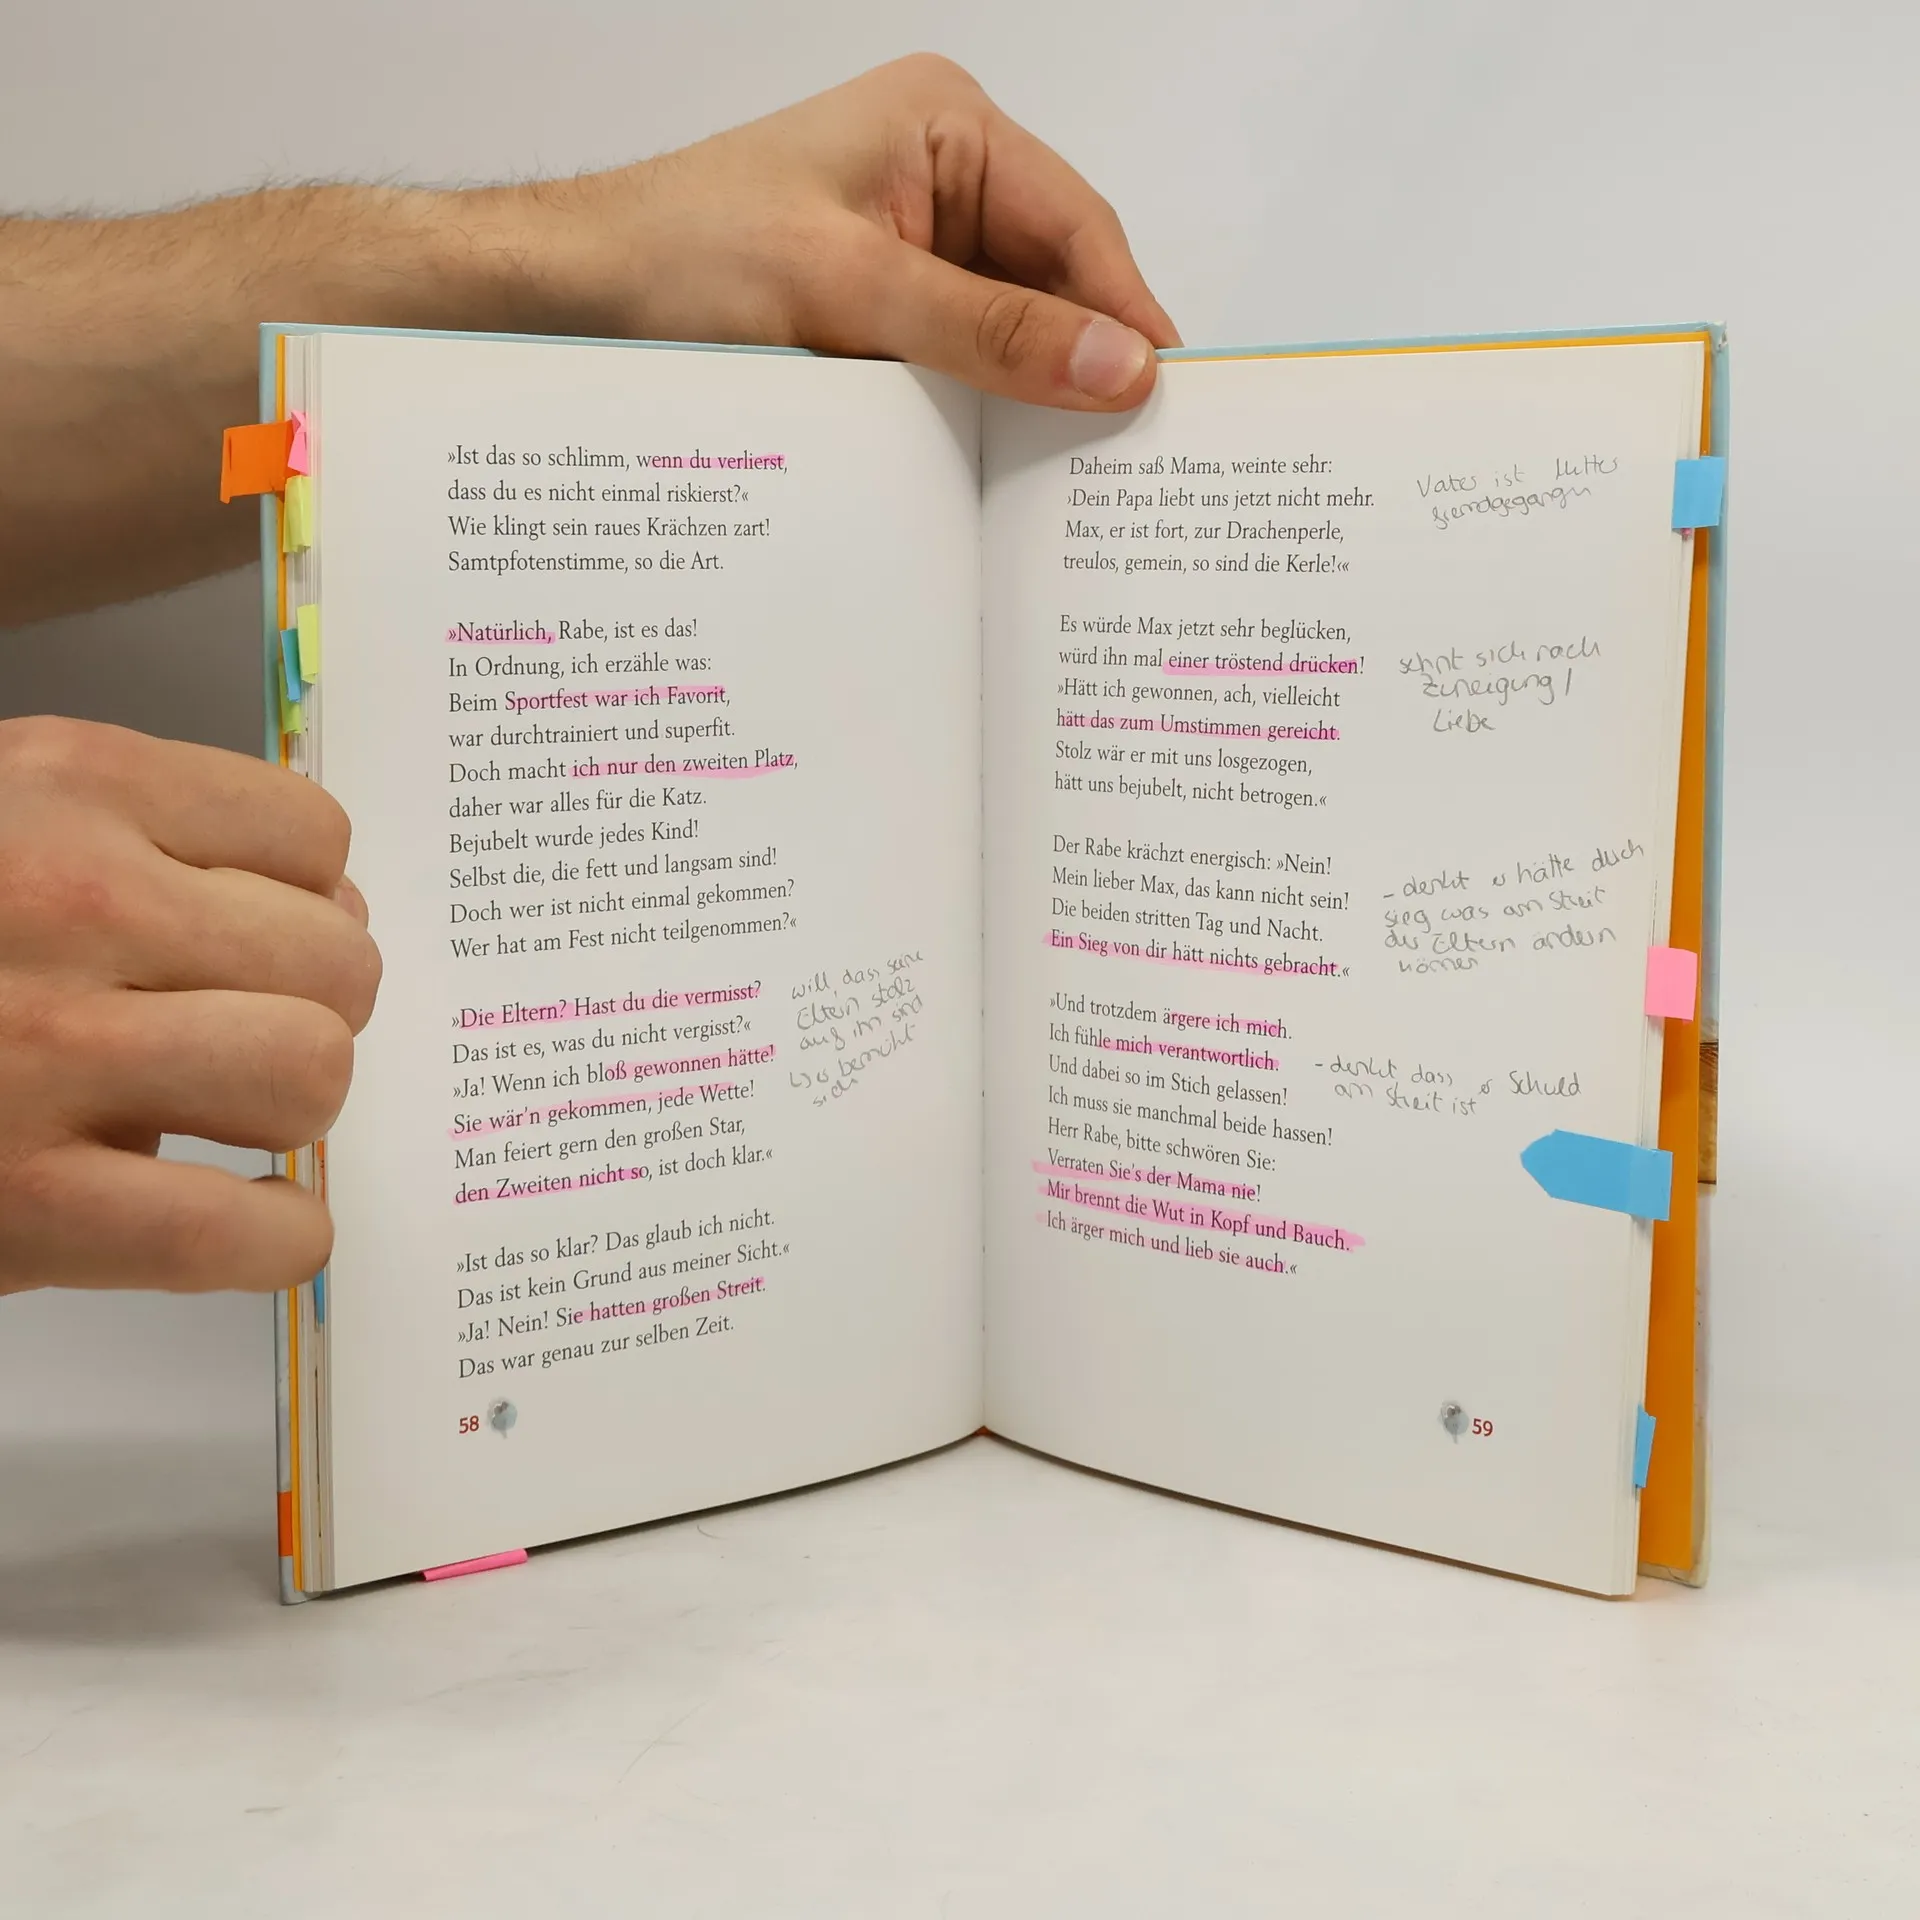 »Ist das so schlimm, wenn du verlierst,
dass du es nicht einmal riskierst?«
Wie klingt sein raues Krächzen zart!
Samtpfotenstimme, so die Art.
»Natürlich, Rabe, ist es das!
In Ordnung, ich erzähle was:
Beim Sportfest war ich Favorit,
war durchtrainiert und superfit.
Doch macht ich nur den zweiten Platz,
daher war alles für die Katz.
Bejubelt wurde jedes Kind!
Selbst die, die fett und langsam sind!
Doch wer ist nicht einmal gekommen?
Wer hat am Fest nicht teilgenommen?«
»Die Eltern? Hast du die vermisst?
Das ist es, was du nicht vergisst?«
»Ja! Wenn ich bloß gewonnen hätte!
Sie wär'n gekommen, jede Wette!
Man feiert gern den großen Star,
den Zweiten nicht so, ist doch klar.«
will, dass seine
Eltern stolz
auf ihn sind
↳ er bemüht
sich
»Ist das so klar? Das glaub ich nicht.
Das ist kein Grund aus meiner Sicht.«
»Ja! Nein! Sie hatten großen Streit.
Das war genau zur selben Zeit.
58
Daheim saß Mama, weinte sehr:
›Dein Papa liebt uns jetzt nicht mehr.
Max, er ist fort, zur Drachenperle,
treulos, gemein, so sind die Kerle!‹«
Vater ist Mutter
fremdgegangen
Es würde Max jetzt sehr beglücken,
würd ihn mal einer tröstend drücken!
»Hätt ich gewonnen, ach, vielleicht
hätt das zum Umstimmen gereicht.
Stolz wär er mit uns losgezogen,
hätt uns bejubelt, nicht betrogen.«
sehnt sich nach
Zuneigung /
Liebe
Der Rabe krächzt energisch: »Nein!
Mein lieber Max, das kann nicht sein!
Die beiden stritten Tag und Nacht.
Ein Sieg von dir hätt nichts gebracht.«
- denkt er hätte durch
sieg was am Streit
der Eltern ändern
können
»Und trotzdem ärgere ich mich.
Ich fühle mich verantwortlich.
Und dabei so im Stich gelassen!
Ich muss sie manchmal beide hassen!
Herr Rabe, bitte schwören Sie:
Verraten Sie's der Mama nie!
Mir brennt die Wut in Kopf und Bauch.
Ich ärger mich und lieb sie auch.«
- denkt dass er Schuld
am Streit ist
59